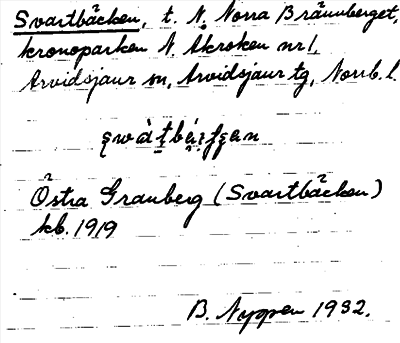 Svartbäcken, t. N. Norra Brännberget,
kronoparken N. Åkroken nr 1,
Arvidsjaur sn, Arvidsjaur tg, Norrb. l.
Östra Granberg (Svartbäcken)
kb. 1919
B. Nyppen 1932.